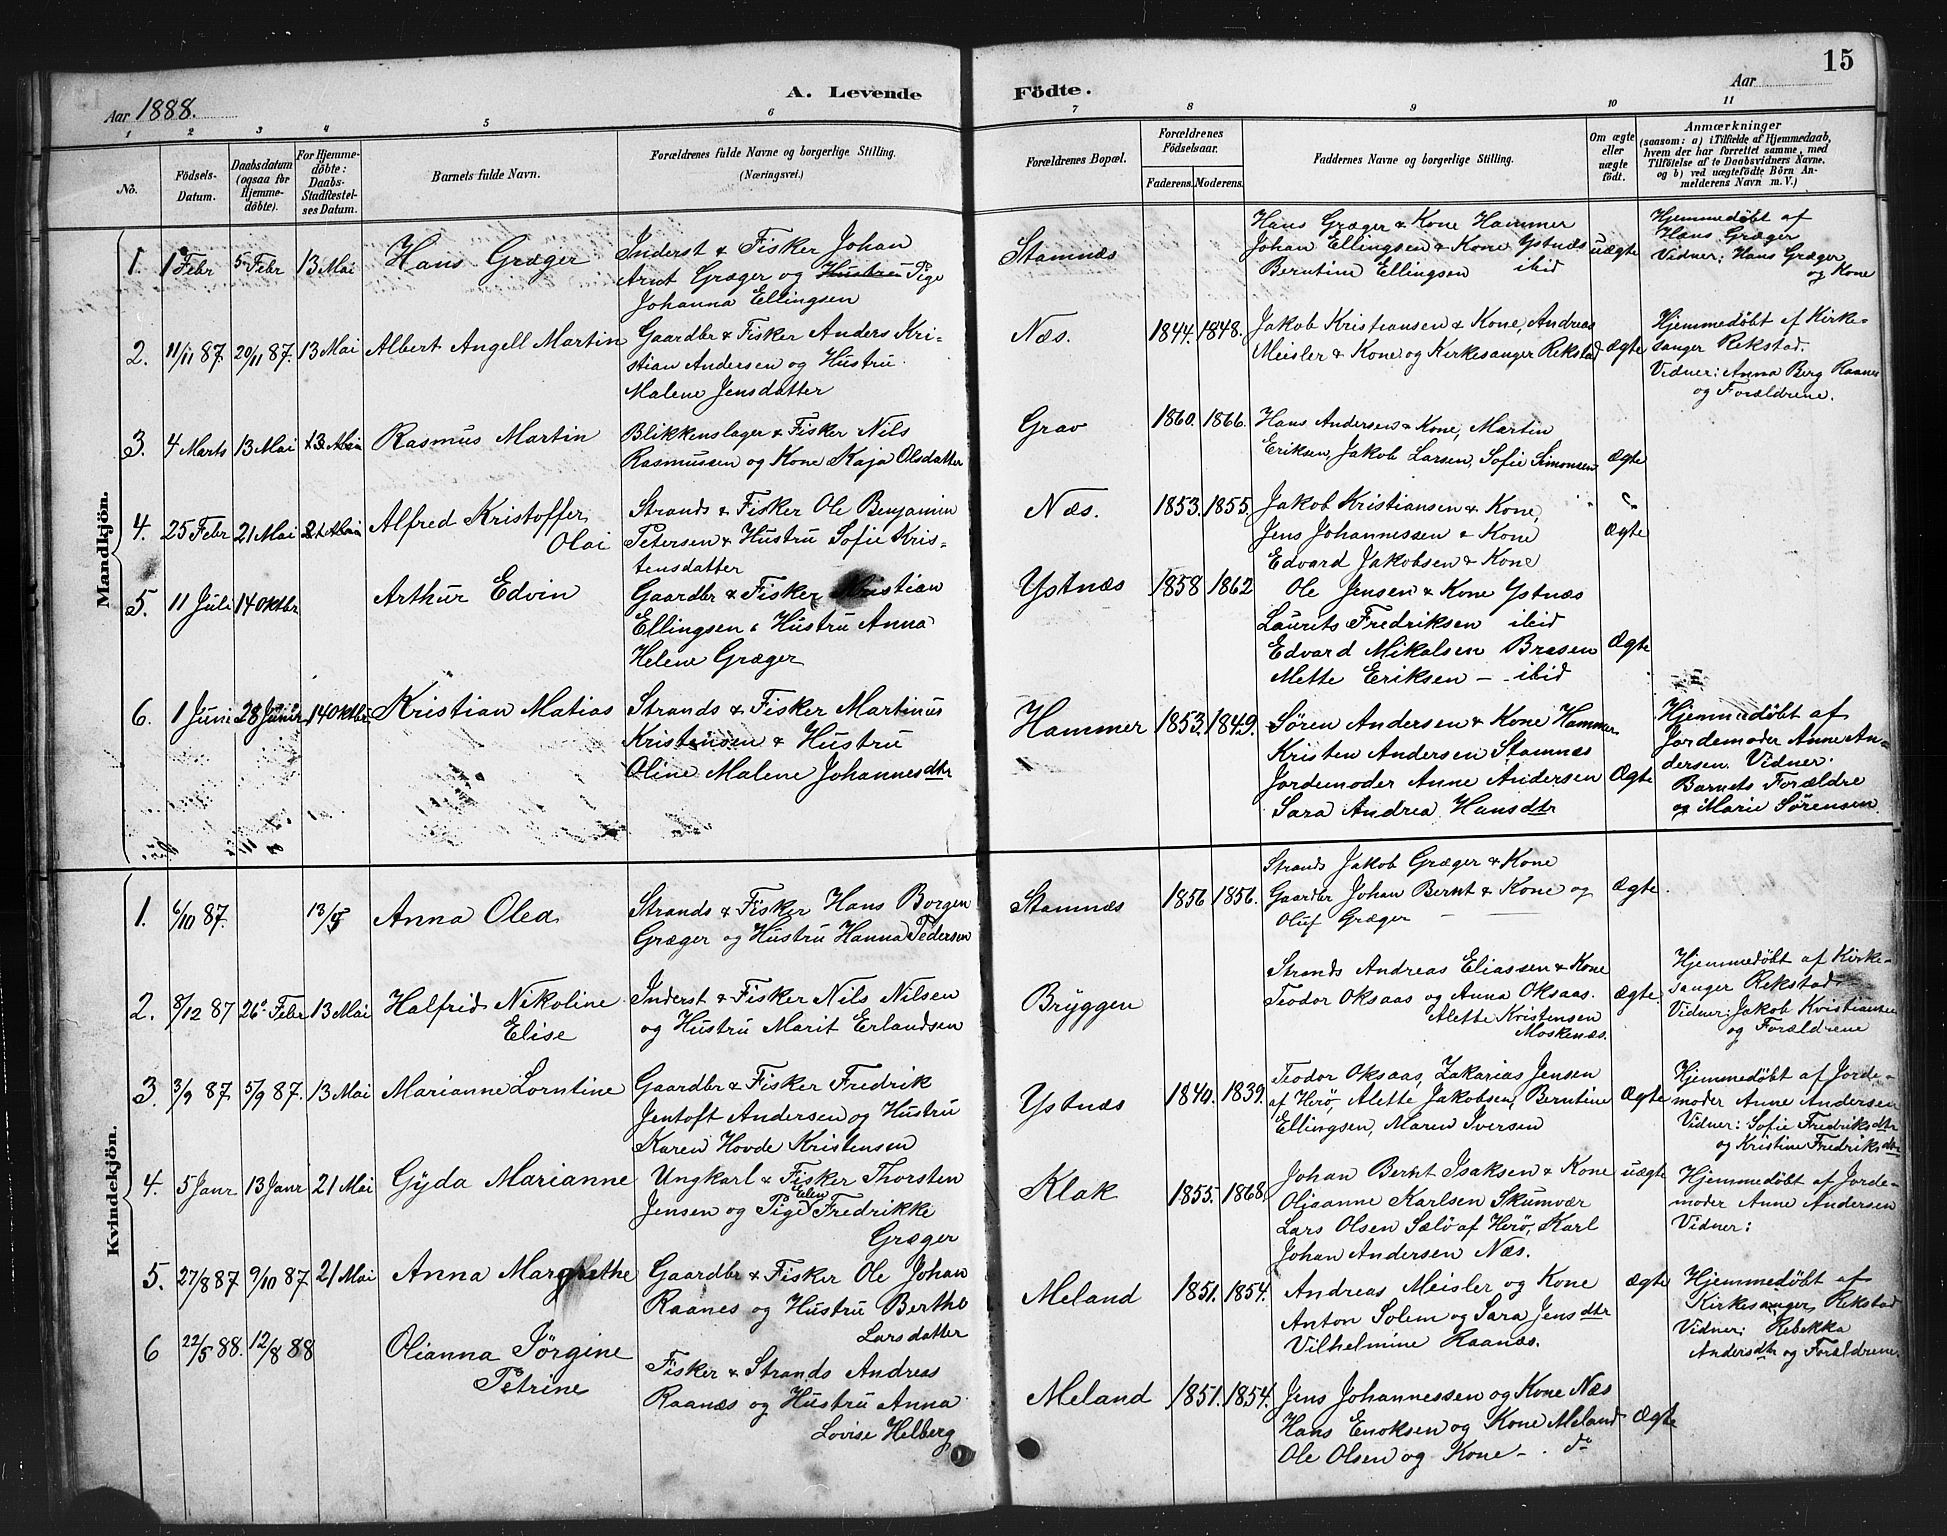 15
Aar 1888.
A. Levende
Födte.
Aar
1 2 3 4 5 6 7 8 9 10 11
No.
Födsels-
Datum.
Daabsdatum
(ogsaa for
Hjemme-
döbte).
For Hjemme-
döbte:
Daabs-
Stadfæstel-
ses Datum.
Barnets fulde Navn.
Forældrenes fulde Navne og borgerlige Stilling.
(Næringsvei.)
Forældrenes Bopæl.
Forældrenes
Födselsaar.
Faderens. Moderens.
Faddernes Navne og borgerlige Stilling.
Om ægte
eller
uægte
födt.
Anmærkninger
(saasom: a) i Tilfælde af Hjemmedaab,
hvem der har forrettet samme, med
Tilföielse af to Daabsvidners Navne,
og b) ved uægtefödte Börn An-
melderens Navn m. V.)
Mandkjön.
1. 1 Febr 5 Febr 13 Mai Hans Græger
Inderst & Fisker Johan
Arnt Græger og Hustru Pige
Johanna Ellingsen
Stamnæs
Hans Græger & Kone Hammer
Johan Ellingsen & Kone Ystnæs
Berntine Ellingsen ibid
uægte
Hjemmedøbt af
Hans Græger
Vidner: Hans Græger
og Kone
2. 11/11 87 20/11 87. 13 Mai Albert Angell Martin
Gaardbr & Fisker Anders Kri-
stian Andersen og Hustru
Malene Jensdatter
Næs. 1844. 1848.
Jakob Kristiansen & Kone, Andreas
Meisler & Kone og Kirkesanger Rekstad
ægte
Hjemmedøbt af Kirke-
sanger Rekstad.
Vidner: Anna Berg Raanes
og Forældrene.
3. 4 Marts 13 Mai 13 Mai Rasmus Martin
Blikkenslager & Fisker Nils
Rasmussen og Kone Kaja Olsdatter
Grav 1860. 1866.
Hans Andersen & Kone, Martin
Eriksen, Jakob Larsen, Sofie Simonsen
Ægte
4. 25 Febr 21 Mai 21 Mai Alfred Kristoffer
Olai
Strands & Fisker Ole Benjamin
Petersen & Hustru Sofie Kris-
tensdatter
Næs. 1853. 1855.
Jakob Kristiansen & Kone,
Jens Johannessen & Kone
Edvard Jakobsen & Kone
Ægte
5. 11 Juli 14 Oktbr Arthur Edvin
Gaardbr & Fisker Kristian
Ellingsen & Hustru Anna
Helene Græger
Ystnæs 1858 1862
Ole Jensen & Kone Ystnæs
Laurits Fredriksen ibid
Edvard Mikalsen Brasen
Mette Eriksen - ibid
Ægte
6. 1 Juni 28 Juni 14 Oktbr Kristian Matias
Strands & Fisker Martinus
Kristensen & Hustru
Oline Malene Johannesdtr
Hammer 1853. 1849.
Søren Andersen & Kone Hammer
Kristen Andersen Stamnæs
Jordemoder Anne Andersen
Sara Andrea Hansdtr
Ægte
Hjemmedøbt af
Jordemoder Anne An-
dersen. Vidner.
Barnets Forældre
og Marie Sørensen
Kvindekjön.
1. 6/10 87. 13/5 Anna Olea
Strands & Fisker Hans Borgen
Græger og Hustru Hanna Pedersen
Stamnæs 1856 1856.
Strands Jakob Græger & Kone
Gaardbr Johan Bernt & Kone og
Oluf Græger
Ægte
2. 8/12 87 26 Febr 13 Mai Halfrid Nikoline
Elise
Inderst & Fisker Nils Nilsen
og Hustru Marit Erlandsen
Bryggen
Strands Andreas Eliassen & Kone
Teodor Oksaas og Anna Oksaas.
Alette Kristensen
Moskenæs.
Ægte
Hjemmedøbt af Kirke-
sanger Rekstad
Vidner: Jakob Kristiansen
og Forældrene
3. 3/9 87 5/9 87. 13 Mai Marianne Lorntine
Gaardbr & Fisker Fredrik
Jentoft Andersen og Hustru
Karen Hovde Kristensen
Ystnæs 1840. 1839.
Teodor Oksaas, Zakarias Jensen
af Herø, Alette Jakobsen, Berntine
Ellingsen, Maren Iversen
Ægte
Hjemmedøbt af Jorde-
moder Anne Andersen
Vidner: Sofie Fredriksdtr
og Kristine Fredriksdtr
4. 5 Janr 13 Janr 21 Mai Gyda Marianne
Ungkarl & Fisker Thorsten
Jensen og Pige Elen Fredrikke
Græger
Klak 1855. 1868.
Johan Bernt Isaksen & Kone
Olianne Karlsen Skumvær
Lars Olsen Sælö af Herø, Karl
Johan Andersen Næs.
uægte
Hjemmedøbt af Jorde-
moder Anne Andersen
Vidner:
5. 27/8 87 9/10 87 21 Mai Anna Margrethe
Gaardbr & Fisker Ole Johan
Raanes og Hustru Berthe
Larsdatter
Meland 1851. 1854.
Andreas Meisler og Kone
Anton Solem og Sara Jensdtr
Vilhelmine Raanæs.
Ægte
Hjemmedøbt af
Kirkesanger Rekstad
Vidner: Rebekka
Andersdtr og Forældrene
6 22/5 88. 12/8 88 Olianna Jørgine
Petrine
Fisker & Strands Andreas
Raanæs og Hustru Anna
Lovise Helberg
Meland 1851. 1854.
Jens Johannessen og Kone Næs
Hans Enoksen og Kone Meland
Ole Olsen og Kone - do
Ægte